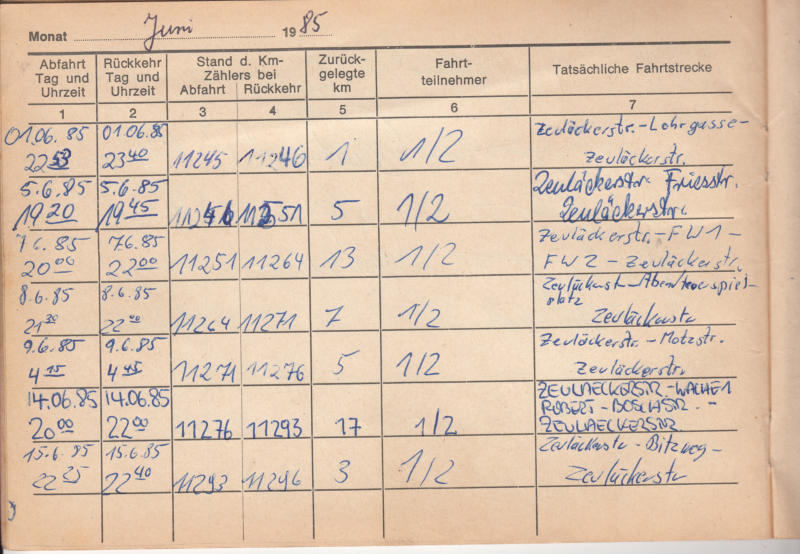 Monat Juni 1985
Abfahrt Tag und Uhrzeit Rückkehr Tag und Uhrzeit Stand d. Km-Zählers bei Abfahrt Rückkehr Zurück-gelegte km Fahrt-teilnehmer Tatsächliche Fahrtstrecke
1 2 3 4 5 6 7
01.06.85 01.06.85 Zeuläckerstr.-Lohrgasse-
22 53 23 40 11245 11246 1 1/2 Zeuläckerstr.
5.6.85 5.6.85 Zeuläckerstr. Friesstr.
19 20 19 45 11246 11251 5 1/2 Zeuläckerstr.
7.6.85 7.6.85 Zeuläckerstr.-FW1-
20 00 22 00 11251 11264 13 1/2 FW2-Zeuläckerstr.
8.6.85 8.6.85 Zeuläckerst-Abenteuerspiel-
platz
21 30 22 00 11264 11271 7 1/2 Zeuläckerstr
9.6.85 9.6.85 Zeuläckerstr.-Motzstr.
4 15 4 45 11271 11276 5 1/2 Zeuläckerstr.
14.06.85 14.06.85 ZEULAECKERSTR.-WACHE1
ROBERT-BOSCHSTR.-
20 00 22 00 11276 11293 17 1/2 ZEULAECKERSTR
15.6.85 15.6.85 Zeuläckerstr-Bitzweg-
22 25 22 40 11293 11296 3 1/2 Zeuläckerstr